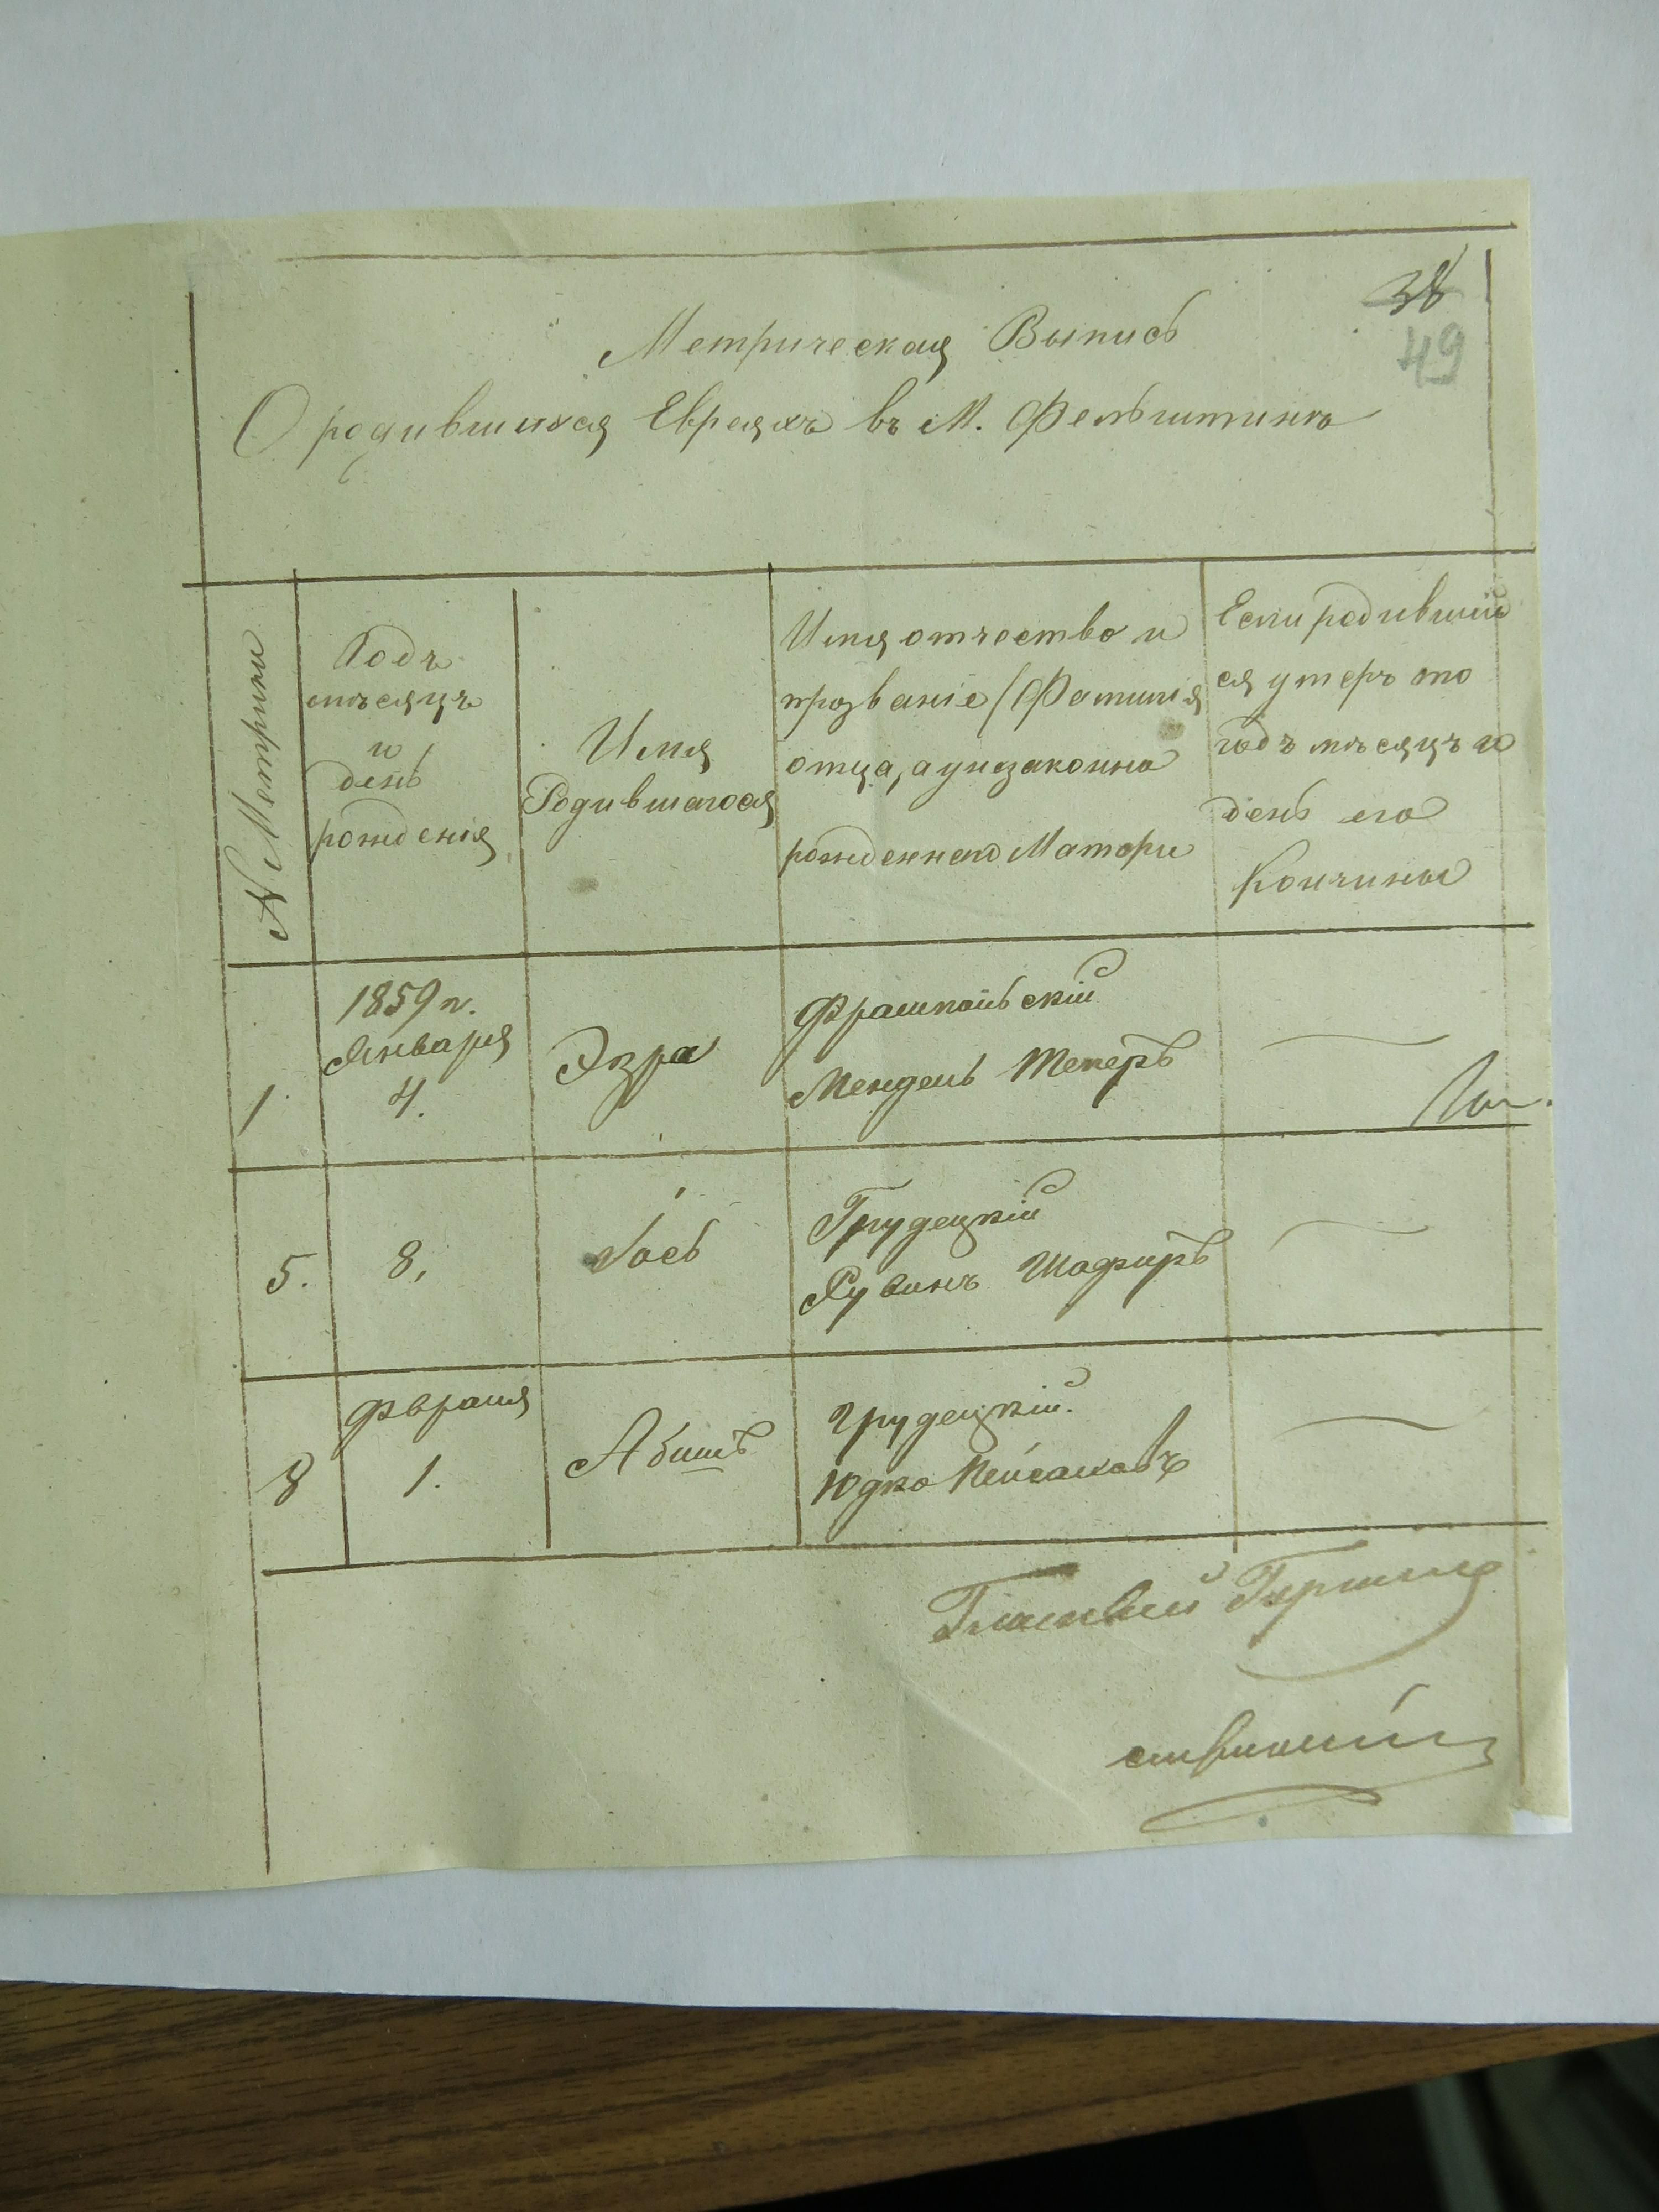 38
49
Метрическая Выпись
О родившихся Евреяхъ въ М. Фельштинѣ
№ Метрики
Годъ
мѣсяцъ
и
день
рожденія
Имя
Родившагося
Имя отчество и
прозваніе (Фамилія
отца, а унезаконно
рожденнаго Матери
Если родившій
ся умеръ то
годъ мѣсяцъ и
день его
Кончины
1
1859 г.
Января
4.
Эзра
Фрампольскій
Мендель Мекеръ
5.
8,
Іось
Грудецкій
Рувинъ Шафиръ
8
Февраля
1.
Абишъ
Грудецкій.
Юдко Пейсаковъ